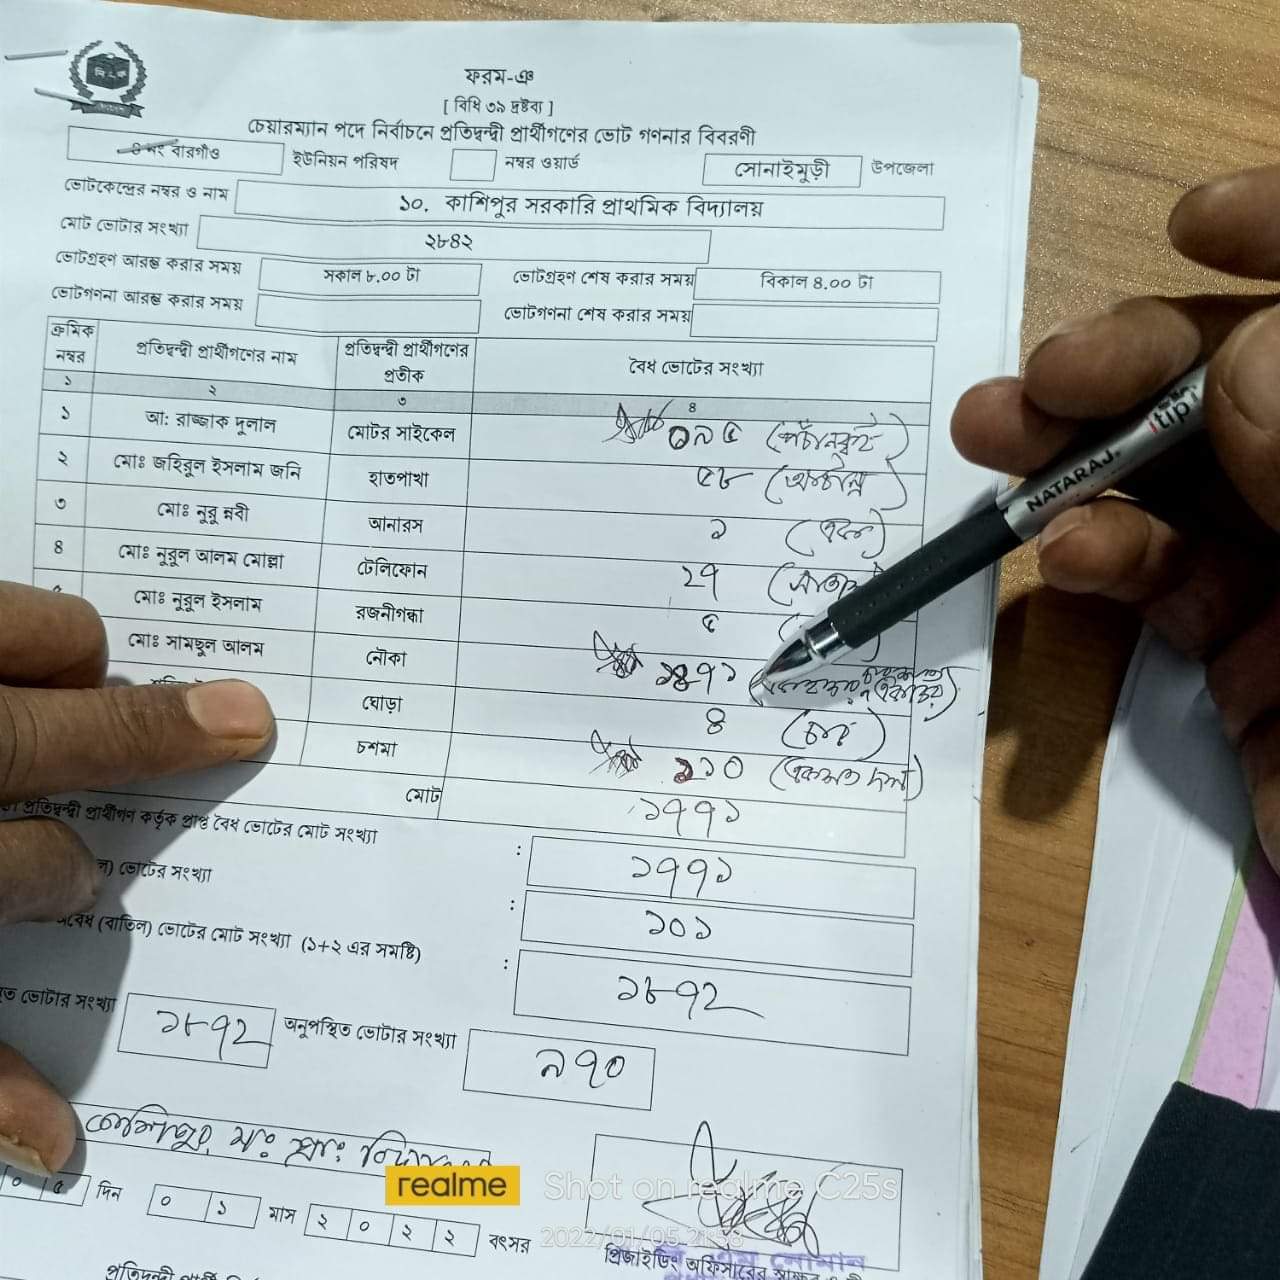 ফরম-ঞ
[ বিধি ৩৯ দ্রষ্টব্য ]
চেয়ারম্যান পদে নির্বাচনে প্রতিদ্বন্দ্বী প্রার্থীগণের ভোট গণনার বিবরণী
নং বারগাঁও ইউনিয়ন পরিষদ নম্বর ওয়ার্ড সোনাইমুড়ী উপজেলা
ভোটকেন্দ্রের নম্বর ও নাম ১০. কাশিপুর সরকারি প্রাথমিক বিদ্যালয়
মোট ভোটার সংখ্যা ২৮৪২
ভোটগ্রহণ আরম্ভ করার সময় সকাল ৮.০০ টা ভোটগ্রহণ শেষ করার সময় বিকাল ৪.০০ টা
ভোটগণনা আরম্ভ করার সময় ভোটগণনা শেষ করার সময়
ক্রমিক নম্বর প্রতিদ্বন্দ্বী প্রার্থীগণের নাম প্রতিদ্বন্দ্বী প্রার্থীগণের প্রতীক বৈধ ভোটের সংখ্যা
১ ২ ৩ ৪
১ আ: রাজ্জাক দুলাল মোটর সাইকেল ০৯৫ (পঁচানব্বই)
২ মোঃ জহিরুল ইসলাম জনি হাতপাখা ৫৮ (আটান্ন)
৩ মোঃ নুরুন্নবী আনারস ১ (এক)
৪ মোঃ নুরুল আলম মোল্লা টেলিফোন ২৭
মোঃ নুরুল ইসলাম রজনীগন্ধা ৫
মোঃ সামছুল আলম নৌকা ১৪৭১
ঘোড়া ৪ (চার)
চশমা ১১০ (একশত দশ)
মোট ১৭৭১
প্রতিদ্বন্দ্বী প্রার্থীগণ কর্তৃক প্রাপ্ত বৈধ ভোটের মোট সংখ্যা : ১৭৭১
ভোটের সংখ্যা : ১০১
(বাতিল) ভোটের মোট সংখ্যা (১+২ এর সমষ্টি) : ১৮৭২
ভোটার সংখ্যা ১৮৭২ অনুপস্থিত ভোটার সংখ্যা ৯৭০
কাশিপুর সঃ প্রাঃ
০ ৫ দিন ০ ১ মাস ২ ০ ২ ২ বৎসর
প্রিজাইডিং অফিসারের স্বাক্ষর
প্রতিদ্বন্দ্বী প্রার্থী
NATARAJ
itip
realme Shot on realme C25s
2022/01/05 21:38